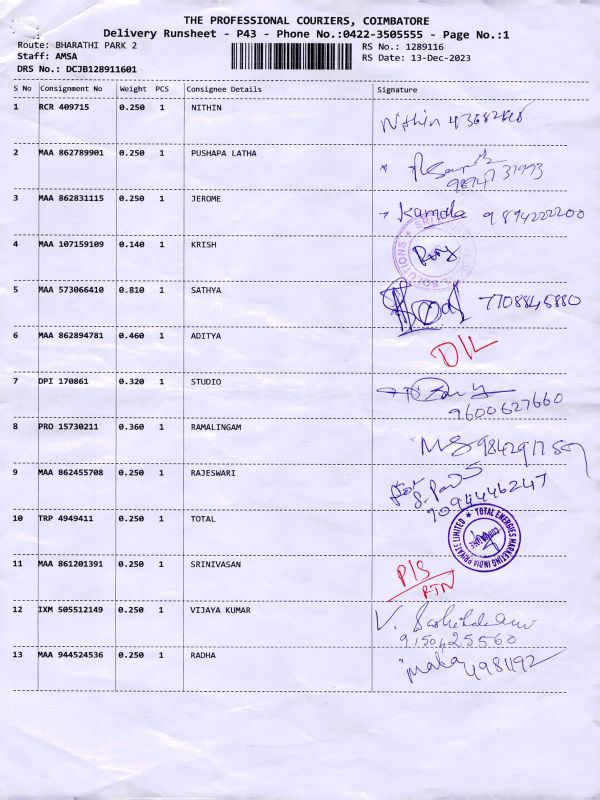 THE PROFESSIONAL COURIERS, COIMBATORE
Delivery Runsheet - P43 - Phone No.:0422-3505555 - Page No.:1
Route: BHARATHI PARK 2
RS No.: 1289116
Staff: AMSA
RS Date: 13-Dec-2023
DRS No.: DCJB128911601
S No Consignment No Weight PCS Consignee Details Signature
1 RCR 409715 0.250 1 NITHIN Nithin
2 MAA 862789901 0.250 1 PUSHAPA LATHA
3 MAA 862831115 0.250 1 JEROME Kamala 9894222200
4 MAA 107159109 0.140 1 KRISH
5 MAA 573066410 0.810 1 SATHYA 7708845880
6 MAA 862894781 0.460 1 ADITYA D/L
7 DPI 170861 0.320 1 STUDIO
9600627660
8 PRO 15730211 0.360 1 RAMALINGAM
9 MAA 862455708 0.250 1 RAJESWARI for
7094446247
10 TRP 4949411 0.250 1 TOTAL TOTAL ENERGIES MARKETING INDIA PRIVATE LIMITED
11 MAA 861201391 0.250 1 SRINIVASAN P/S
RTN
12 IXM 505512149 0.250 1 VIJAYA KUMAR V.
9150425560
13 MAA 944524536 0.250 1 RADHA